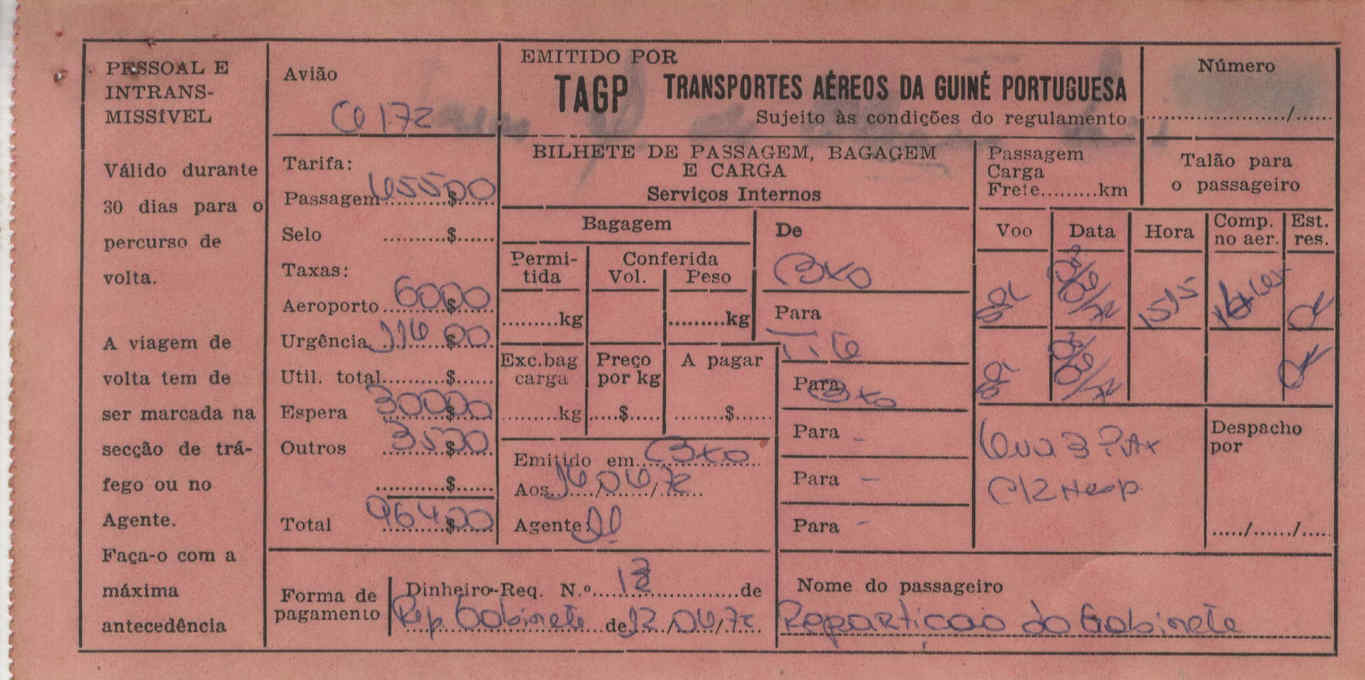 PESSOAL E
INTRANS-
MISSÍVEL
Válido durante
30 dias para o
percurso de
volta.
A viagem de
volta tem de
ser marcada na
secção de trá-
fego ou no
Agente.
Faça-o com a
máxima
antecedência
Avião
C 172
Tarifa:
Passagem 65500 $
Selo ..........$......
Taxas:
Aeroporto 6000 $
Urgência 11600 $
Util. total ..........$......
Espera 30000 $
Outros 3500 $
..........$......
Total 96400 $
EMITIDO POR
TAGP TRANSPORTES AÉREOS DA GUINÉ PORTUGUESA
Sujeito às condições do regulamento
Número
............................/......
BILHETE DE PASSAGEM, BAGAGEM
E CARGA
Serviços Internos
Passagem
Carga
Frete.........km
Talão para
o passageiro
Bagagem
Permi-
tida
Conferida
Vol. Peso
.........kg .........kg
Exc.bag
carga
Preço
por kg
A pagar
.........kg ....$..... ........$......
Emitido em Bxo
Aos 16/06/72
Agente
De
Bxo
Para
Para
Bxo
Para -
Para -
Para -
Voo Data Hora Comp.
no aer. Est.
res.
1515 OK
OK
3 Pax
Despacho
por
...../....../.....
Forma de
pagamento
Dinheiro-Req. N.º 13 de
Rep. Gabinete de 12/06/72
Nome do passageiro
Reparticao do Gabinete